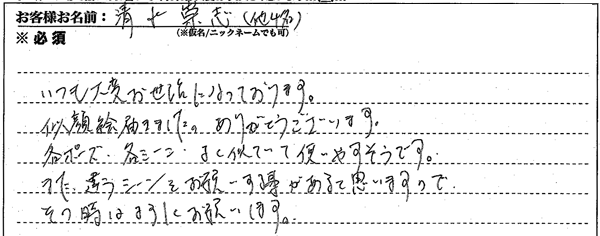 お客様お名前：清水 崇志（他4名）
※必須 （※仮名/ニックネームでも可）
いつも大変お世話になっております。
似顔絵届きました。ありがとうございます。
各ポーズ、各シーン、よく似ていて使いやすそうです。
また、違うシーンをお願いする事があると思いますので
その時はよろしくお願いします。